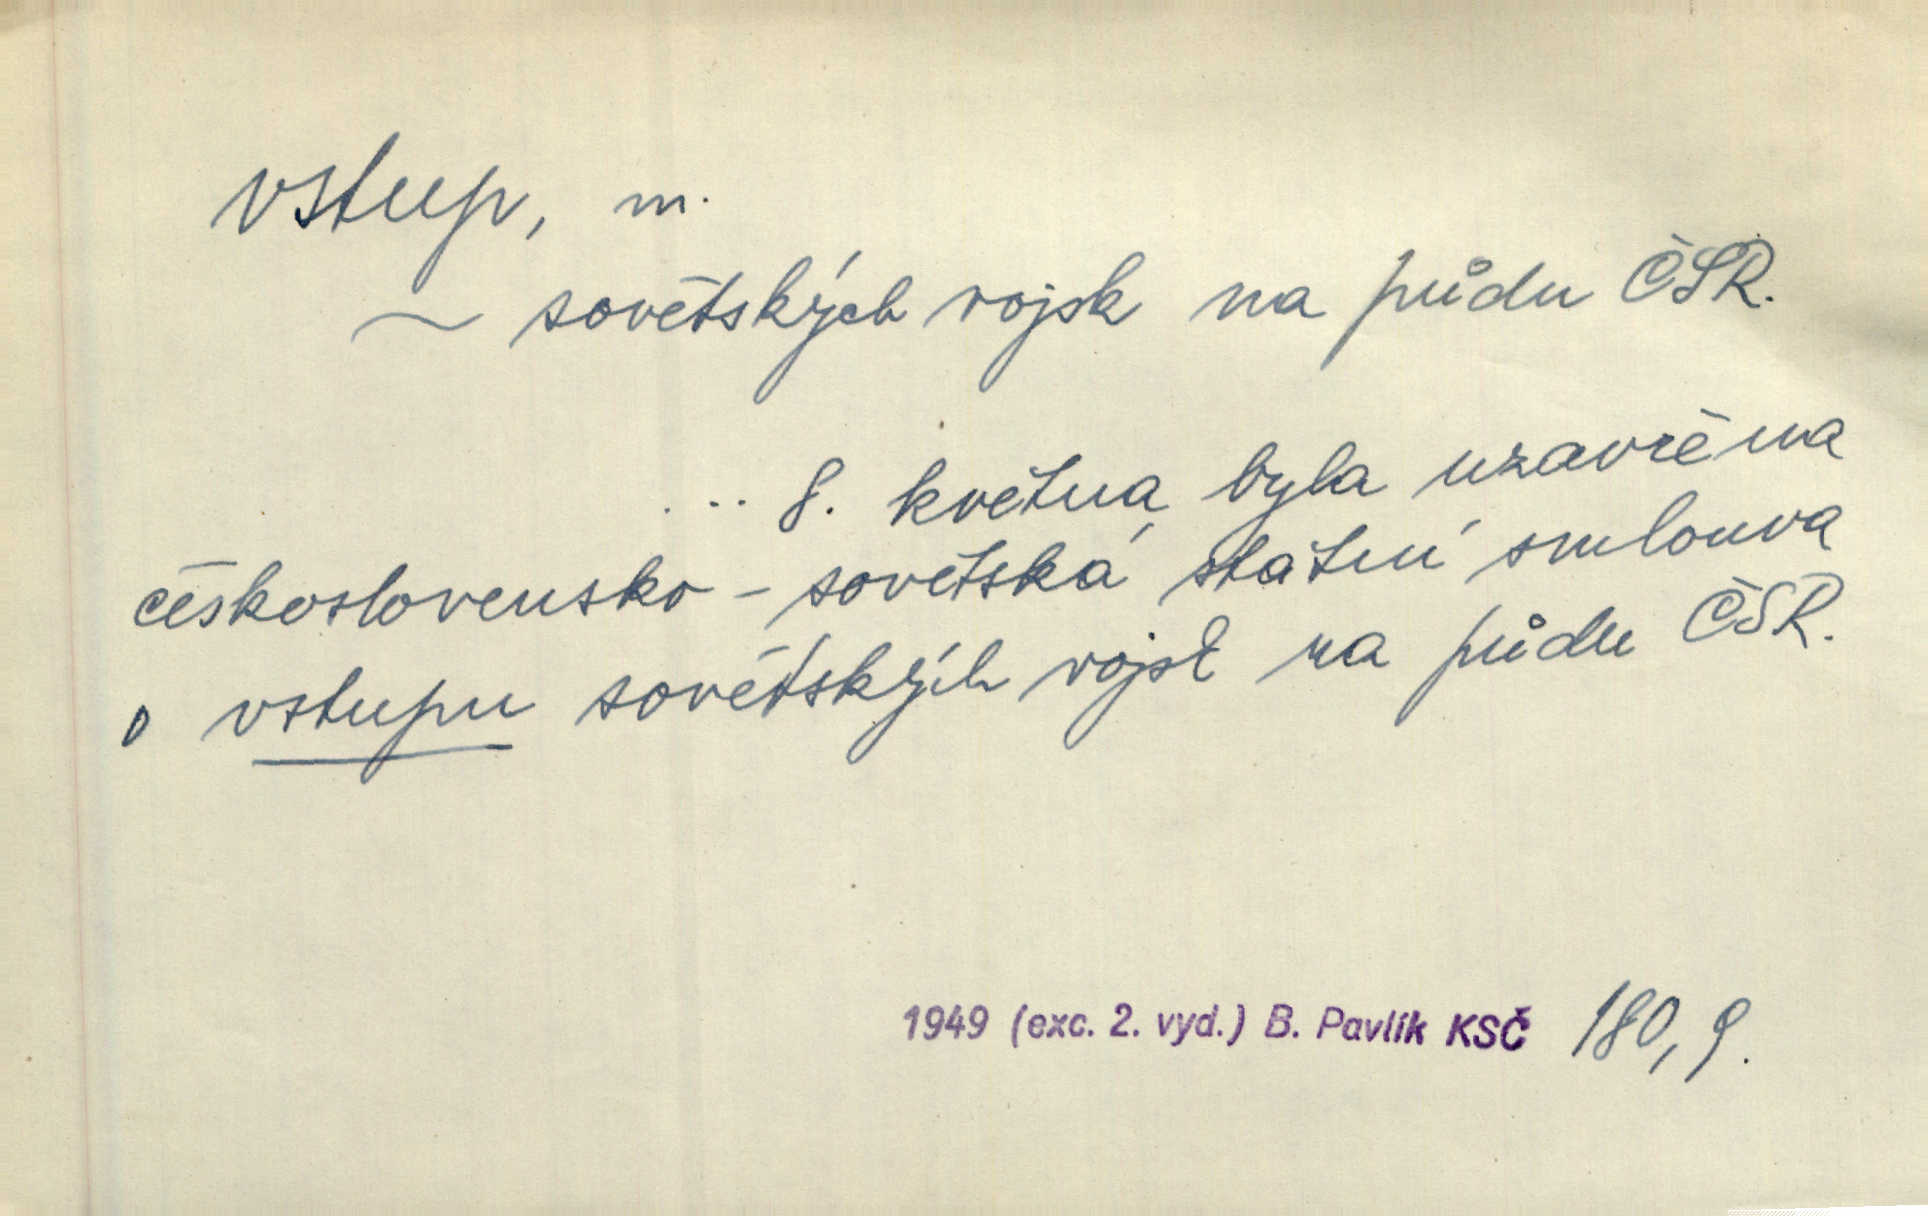 vstup, m.
~ sovětských vojsk na půdu ČSR.
... 8. května byla uzavřena
československo - sovětská státní smlouva
o vstupu sovětských vojsk na půdu ČSR.
1949 (exc. 2. vyd.) B. Pavlík KSČ 180, 9.